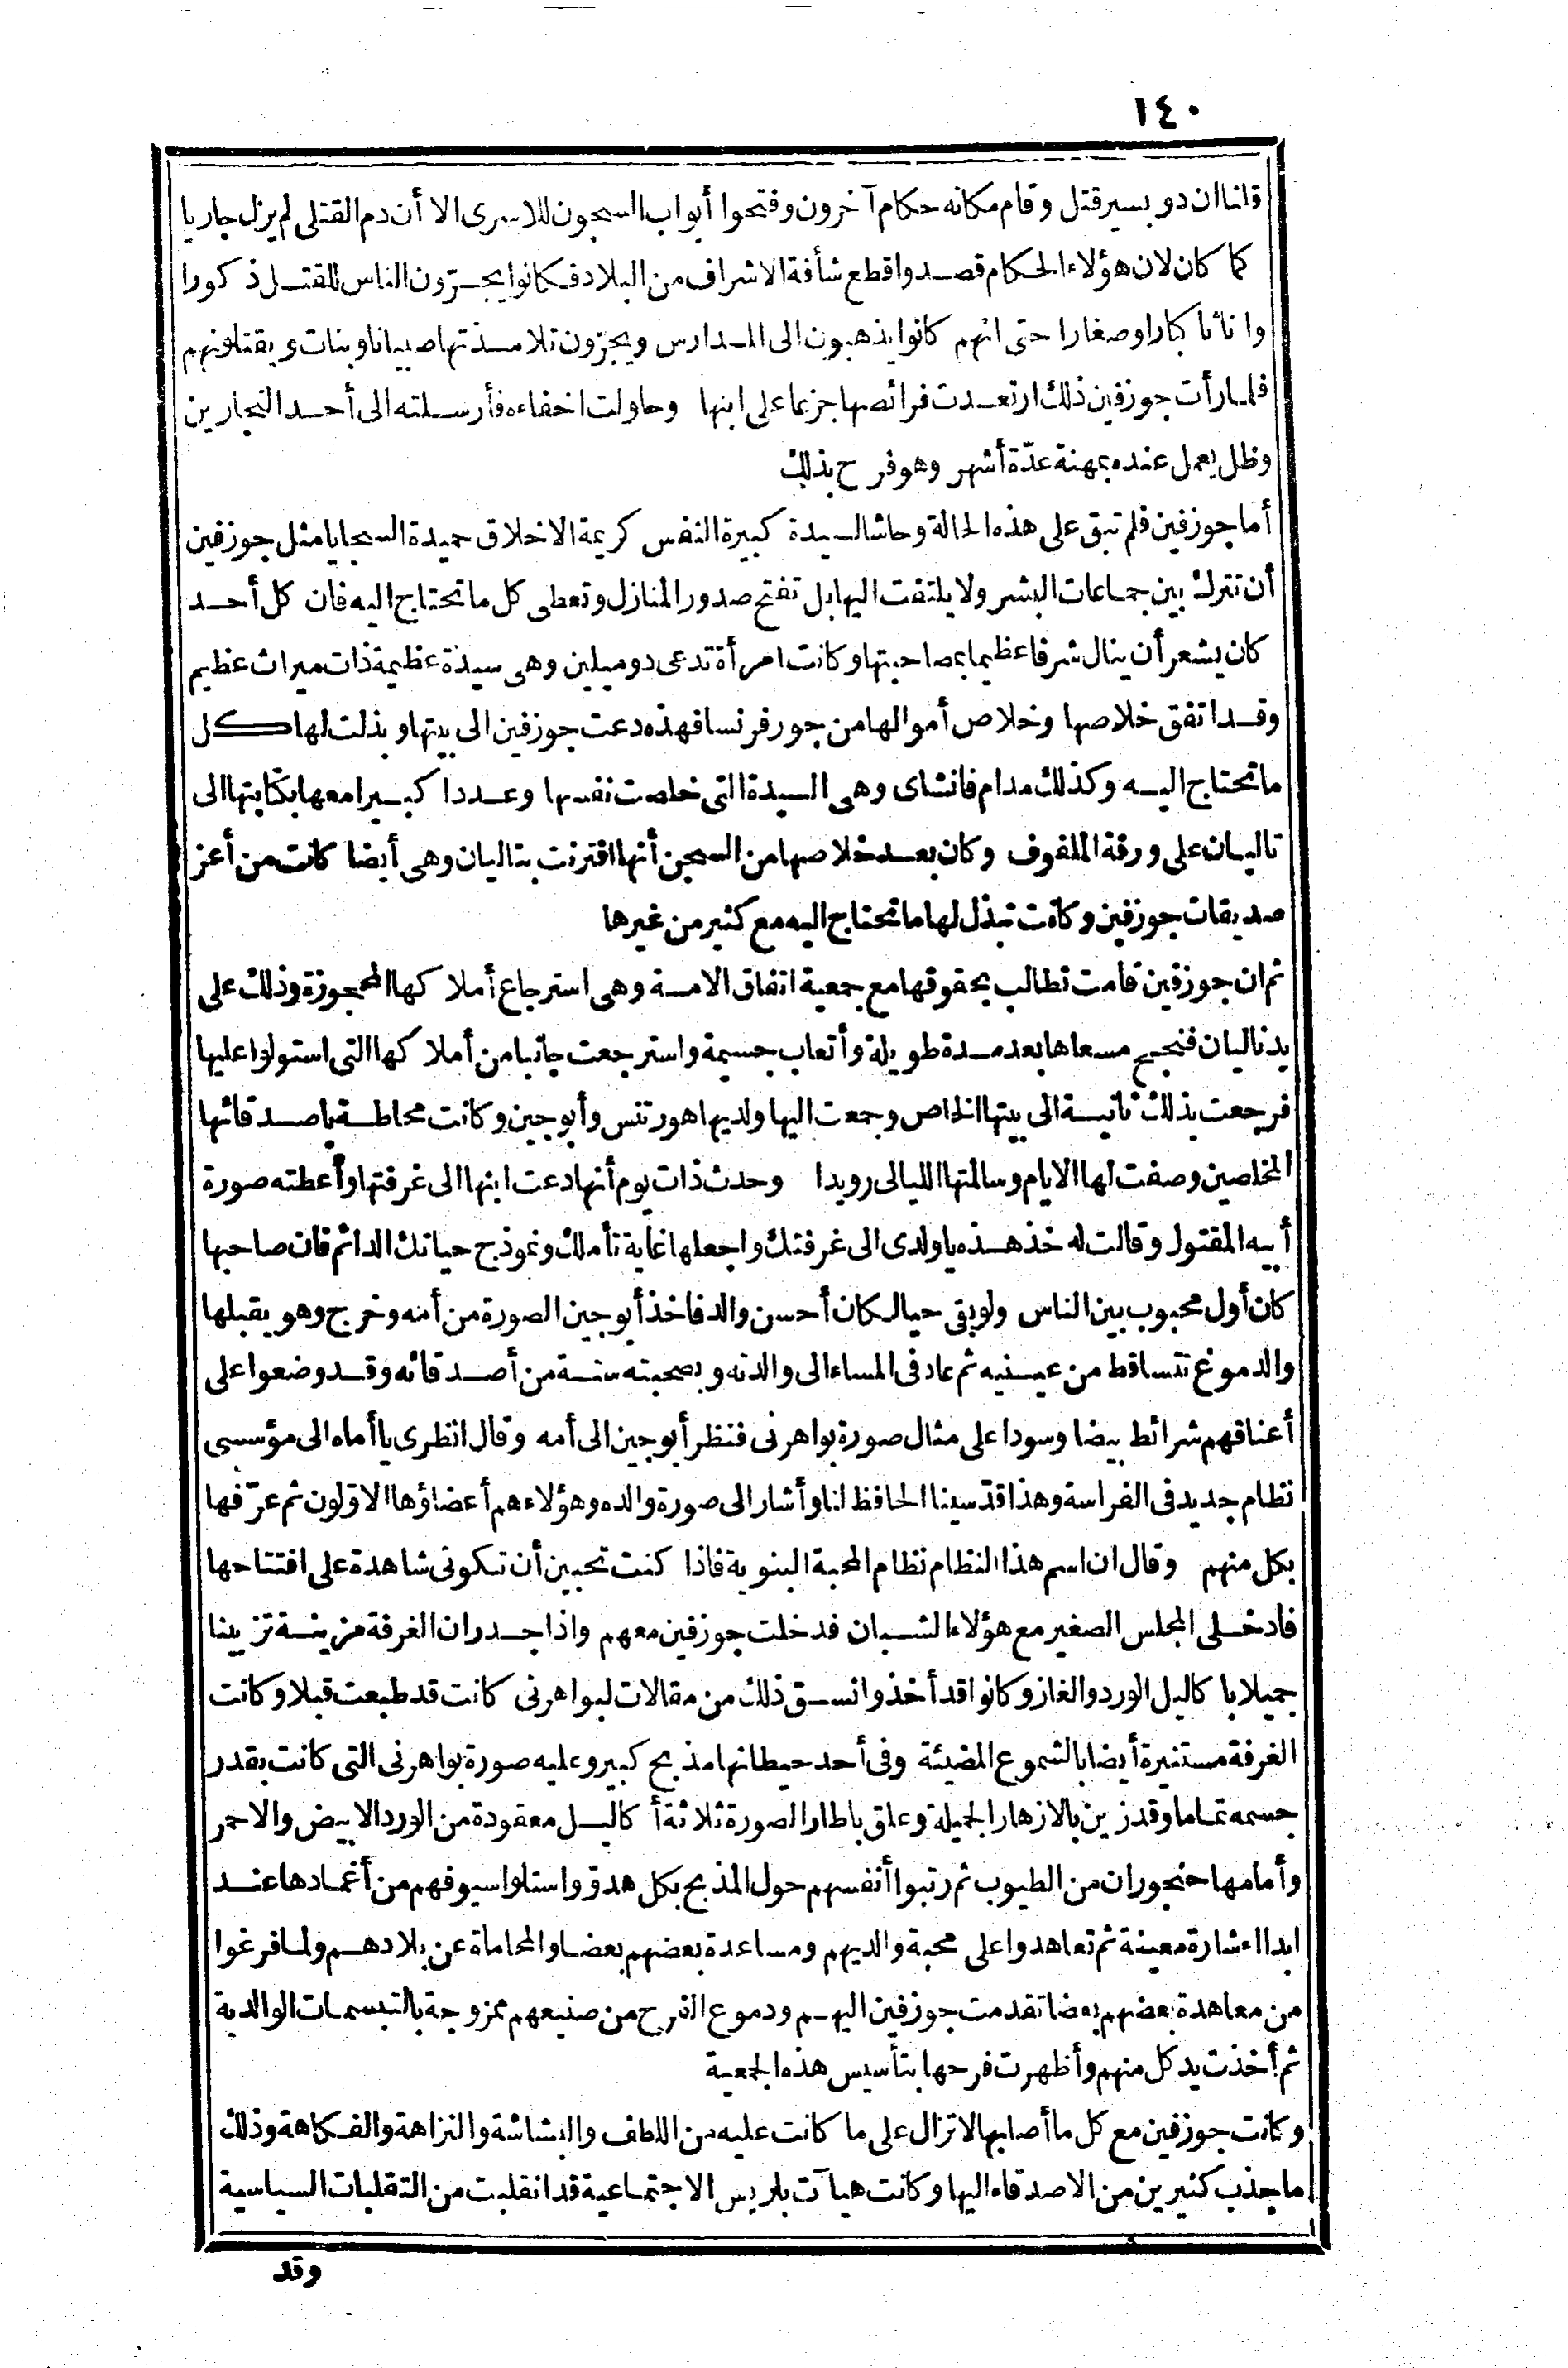 ١٤٠
قلنا ان دوبسير قتل وقام مكانه حكام آخرون وفتحوا أبواب السجون للاسرى الا أن دم القتلى لم يزل جاريا
كما كان لان هؤلاء الحكام قصدوا قطع شأفة الاشراف من البلاد فكانوا يجرّون الناس للقتل ذكورا
واناثا كبارا وصغارا حتى انهم كانوا يذهبون الى المدارس ويجرّون تلامذتها صبيانا وبنات ويقتلونهم
فلما رأت جوزفين ذلك ارتعدت فرائصها جزعا على ابنها وحاولت اخفاءه فأرسلته الى أحد النجارين
وظل يعمل عنده بمهنة عدّة أشهر وهو فرح بذلك
أما جوزفين فلم تبق على هذه الحالة وحاشا لسيدة كبيرة النفس كريمة الاخلاق حميدة السجايا مثل جوزفين
أن تترك بين جماعات البشر ولا يلتفت اليها بل تفتح صدور المنازل وتعطى كل ما تحتاج اليه فان كل أحد
كان يشعر أن ينال شرفا عظيما بمصاحبتها وكانت امرأة تدعى دوميلين وهى سيدة عظيمة ذات ميراث عظيم
وقد اتفق خلاصها وخلاص أموالها من جور فرنسا فهذه دعت جوزفين الى بيتها وبذلت لها كل
ما تحتاج اليه وكذلك مدام فانتناى وهى السيدة التى خلصت نفسها وعددا كبيرا معها بكتابتها الى
تاليان على ورقة الملفوف وكان بعد خلاصها من السجن أنها اقترنت بتاليان وهى أيضا كانت من أعز
صديقات جوزفين وكانت تبذل لها ما تحتاج اليه مع كثير من غيرها
ثم ان جوزفين قامت تطالب بحقوقها مع جمعية اتفاق الامة وهى استرجاع أملاكها المحجوزة وذلك على
يد تاليان فنجح مسعاها بعد مدة طويلة وأتعاب جسيمة واسترجعت جانبا من أملاكها التى استولوا عليها
فرجعت بذلك ثانية الى بيتها الخاص وجمعت اليها ولديها هورتنس وأيوجين وكانت محاطة باصدقائها
المخلصين وصفت لها الايام وسالمتها الليالى رويدا وحدث ذات يوم أنها دعت ابنها الى غرفتها وأعطته صورة
أبيه المقتول وقالت له خذ هذه يا ولدى الى غرفتك واجعلها غاية تأملك ونموذج حياتك الدائم فان صاحبها
كان أول محبوب بين الناس ولو بقى حيا لكان أحسن والد فاخذ أيوجين الصورة من أمه وخرج وهو يقبلها
والدموع تتساقط من عينيه ثم عاد فى المساء الى والدته وبصحبته ستة من أصدقائه وقد وضعوا على
أعناقهم شرائط بيضا وسودا على مثال صورة بواهرنى فنظر أيوجين الى أمه وقال انظرى يا أماه الى مؤسسى
نظام جديد فى الفراسة وهذا قدّيسنا الحافظ لنا وأشار الى صورة والده وهؤلاء هم أعضاؤها الاوّلون ثم عرّفها
بكل منهم وقال ان اسم هذا النظام نظام المحبة البنوية فاذا كنت تحبين أن تكونى شاهدة على افتتاحها
فادخلى المجلس الصغير مع هؤلاء الشبان فدخلت جوزفين معهم واذا جدران الغرفة مزينة تزيينا
جميلا با كاليل الورد والغاز وكانوا قد أخذوا نسق ذلك من مقالات لبواهرنى كانت قد طبعت قبلا وكانت
الغرفة مستنيرة أيضا بالشموع المضيئة وفى أحد حيطانها مذبح كبير وعليه صورة بواهرنى التى كانت بقدر
جسمه تماما وقد زين بالازهار الجميلة وعلق باطار الصورة ثلاثة أكاليل معقودة من الورد الابيض والاحمر
وأمامها خنجوران من الطيوب ثم رتبوا أنفسهم حول المذبح بكل هدوّ واستلوا سيوفهم من أغمادها عند
ابداء اشارة معينة ثم تعاهدوا على محبة والديهم ومساعدة بعضهم بعضا والمحاماة عن بلادهم ولما فرغوا
من معاهدة بعضهم بعضا تقدمت جوزفين اليهم ودموع الفرح من صنيعهم ممزوجة بالتبسمات الوالدية
ثم أخذت يد كل منهم وأظهرت فرحها بتأسيس هذه الجمعية
وكانت جوزفين مع كل ما أصابها لا تزال على ما كانت عليه من اللطف والبشاشة والنزاهة والفكاهة وذلك
ما جذب كثيرين من الاصدقاء اليها وكانت هيآت باريس الاجتماعية قد انقلبت من التقلبات السياسية
وقد